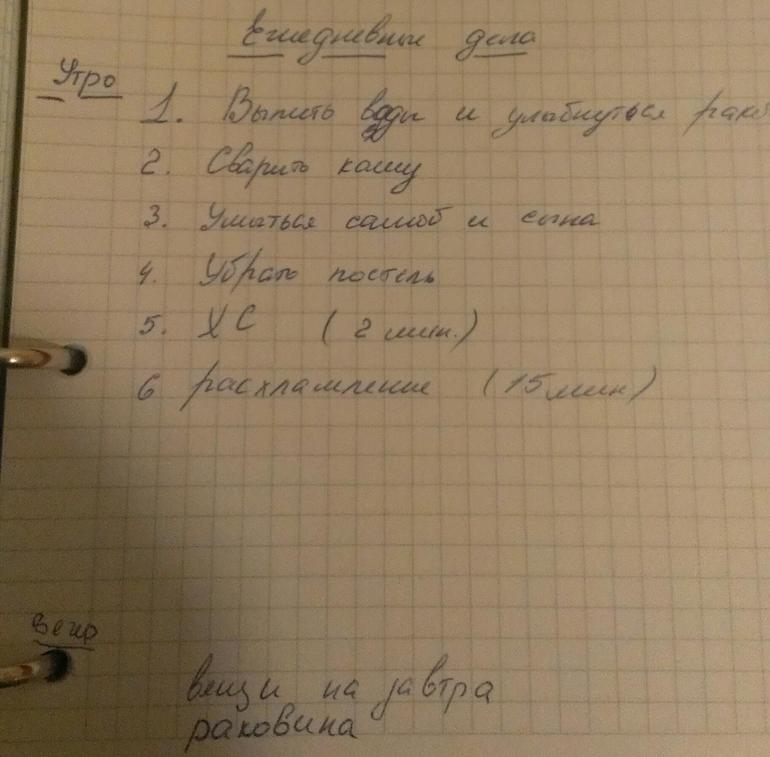 Ежедневные дела
Утро
1. Выпить воды и улыбнуться рако
2. Сварить кашу
3. Умыться самой и сына
4. Убрать постель
5. ХС (2 мин.)
6 расхламление (15 мин)
Вечер
вещи на завтра
раковина